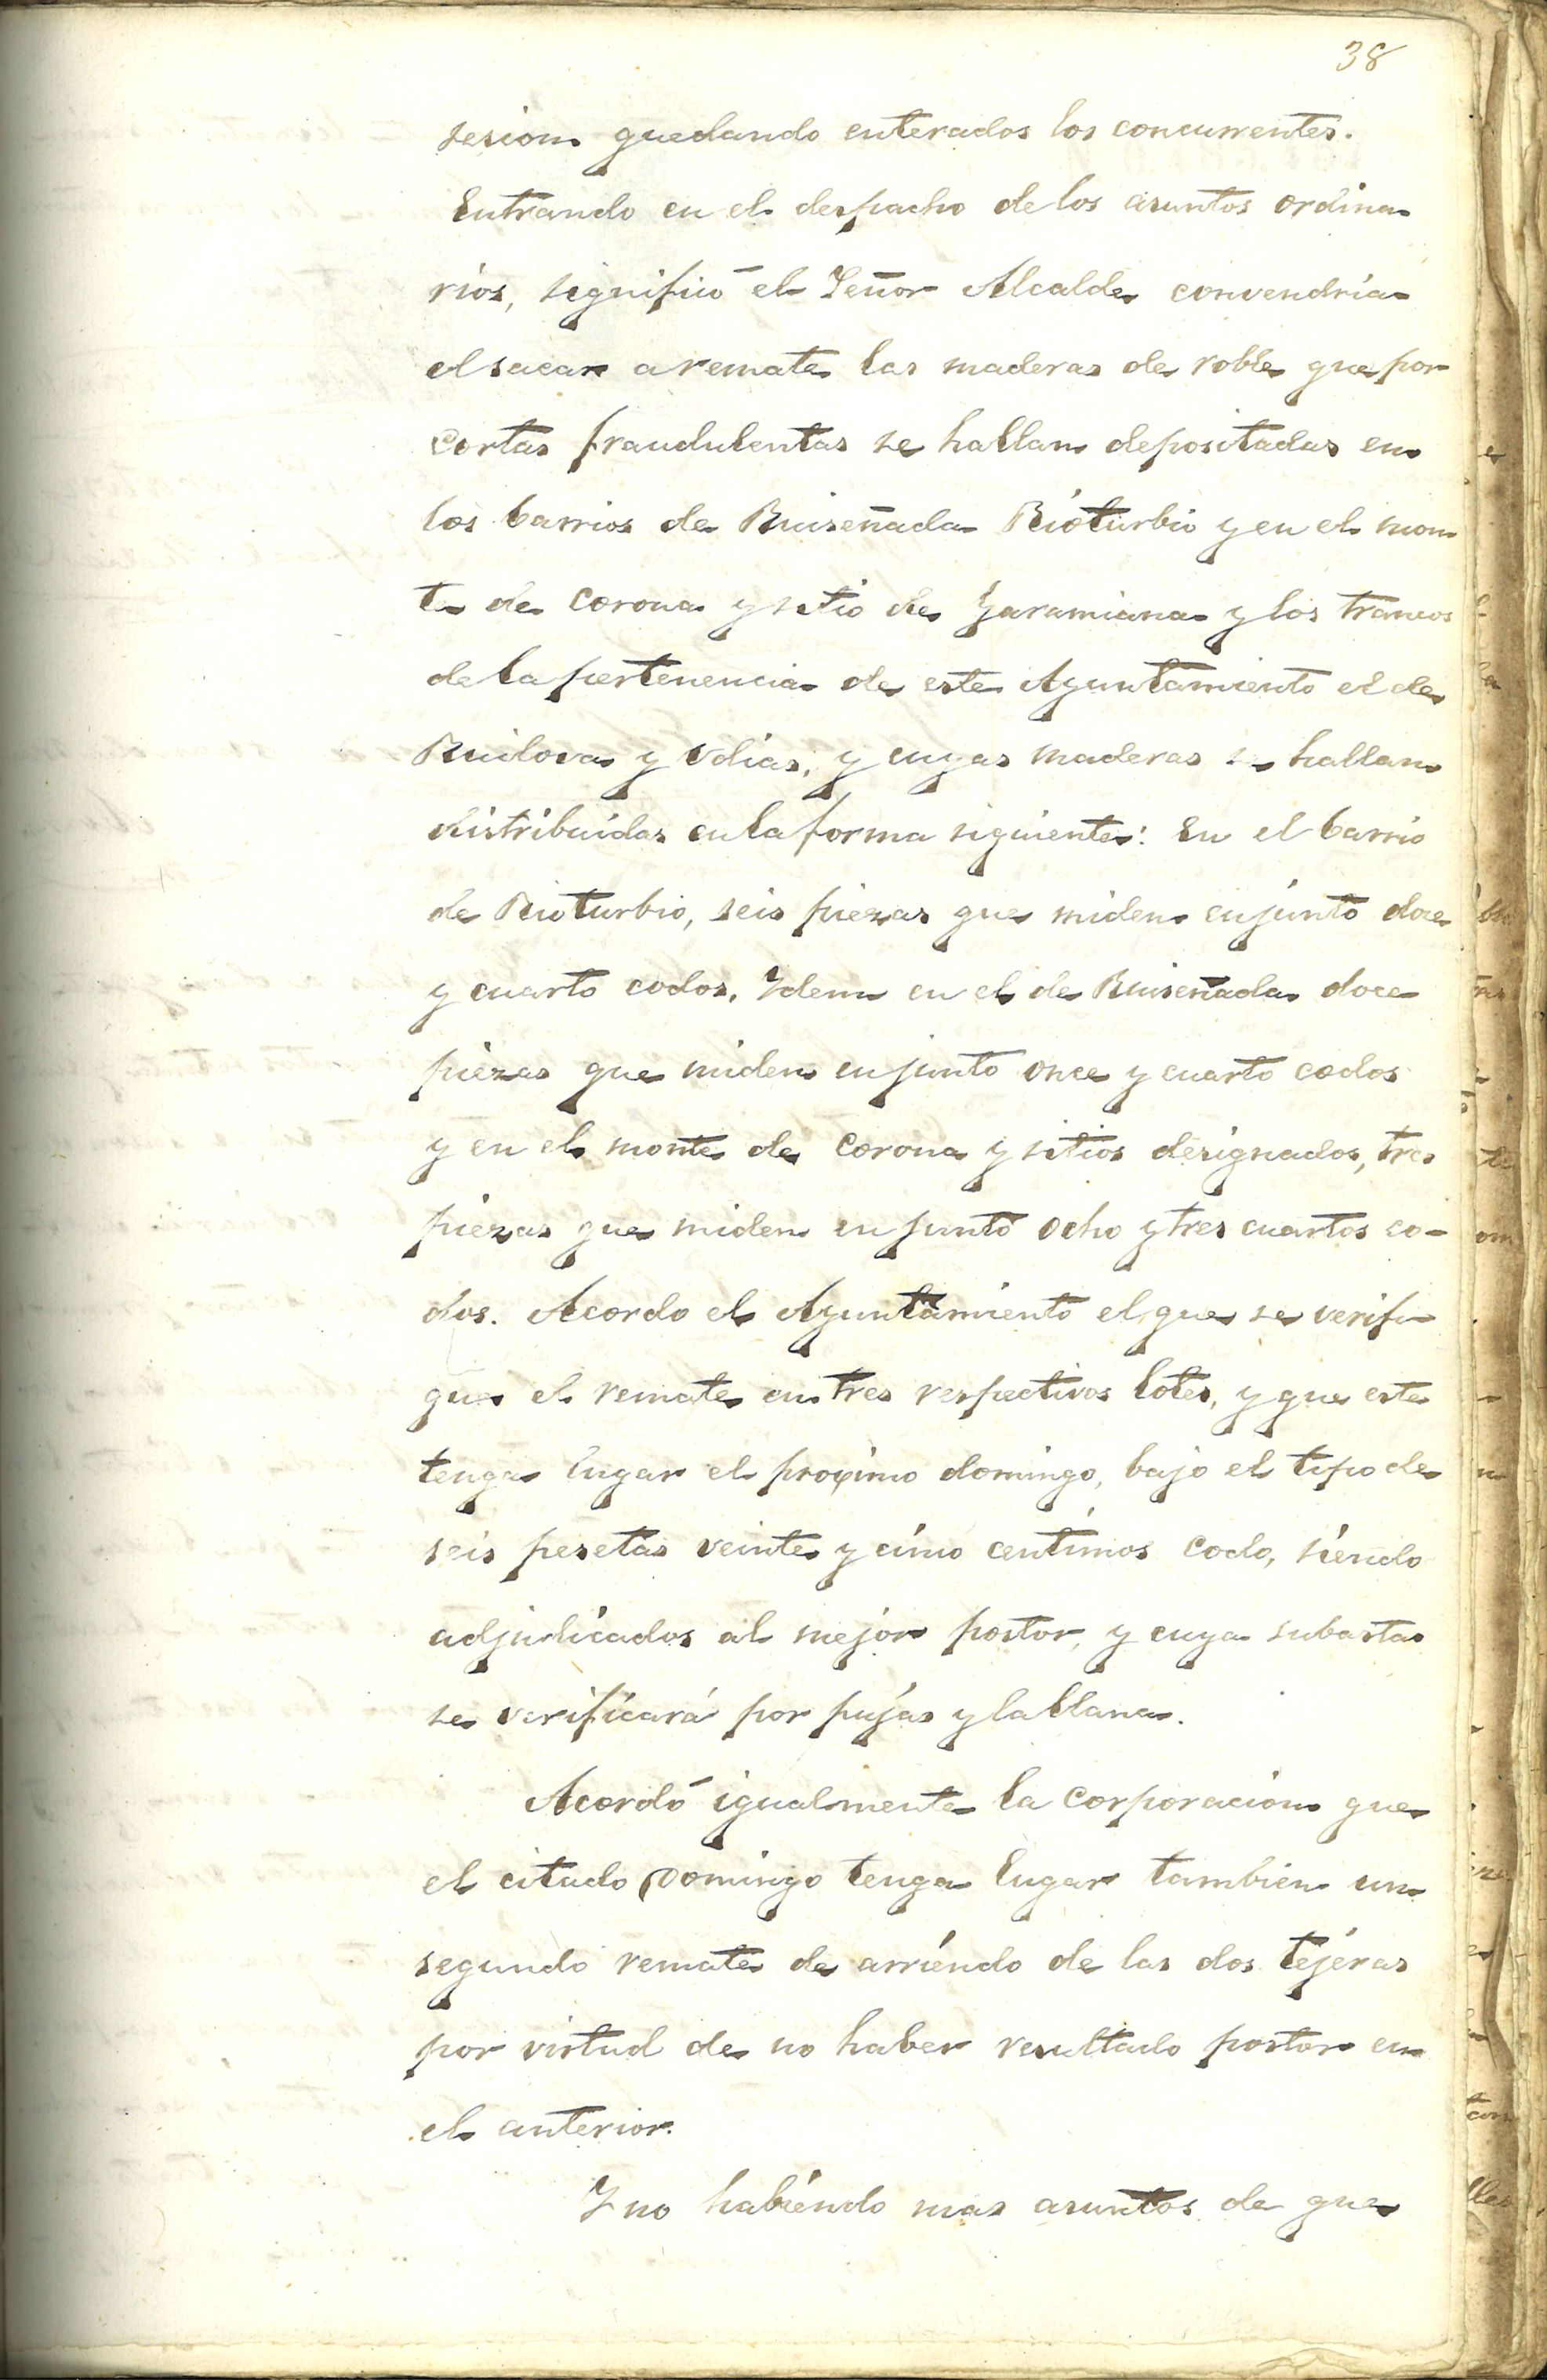 38
sesion quedando enterados los concurrentes.
Entrando en el despacho de los asuntos ordina
rios, significó el Señor Alcalde convendria
el sacar a remate las maderas de roble que por
cortas fraudulentas se hallan depositadas en
los barrios de Ruiseñada Rioturbio y en el mon
te de Corona y sitio de Jaramiana y los trancos
de la pertenencia de este Ayuntamiento el de
Ruilova y Udias, y cuyas maderas se hallan
distribuidas en la forma siguiente: En el barrio
de Rioturbio, seis piezas que miden en junto doce
y cuarto codos. Idem en el de Ruiseñada doce
piezas que miden en junto once y cuarto codos
y en el monte de Corona y sitios designados, tres
piezas que miden en junto ocho y tres cuartos co-
dos. Acordo el Ayuntamiento el que se verifi
que el remate en tres respectivos lotes, y que este
tenga lugar el proximo domingo, bajo el tipo de
seis pesetas veinte y cinco centimos codo, siendo
adjudicados al mejor postor, y cuya subasta
se verificará por pujas y la llana.
Acordó igualmente la corporacion que
el citado Domingo tenga lugar tambien un
segundo remate de arriendo de las dos tejeras
por virtud de no haber resultado postor en
el anterior.
Y no habiendo mas asuntos de que